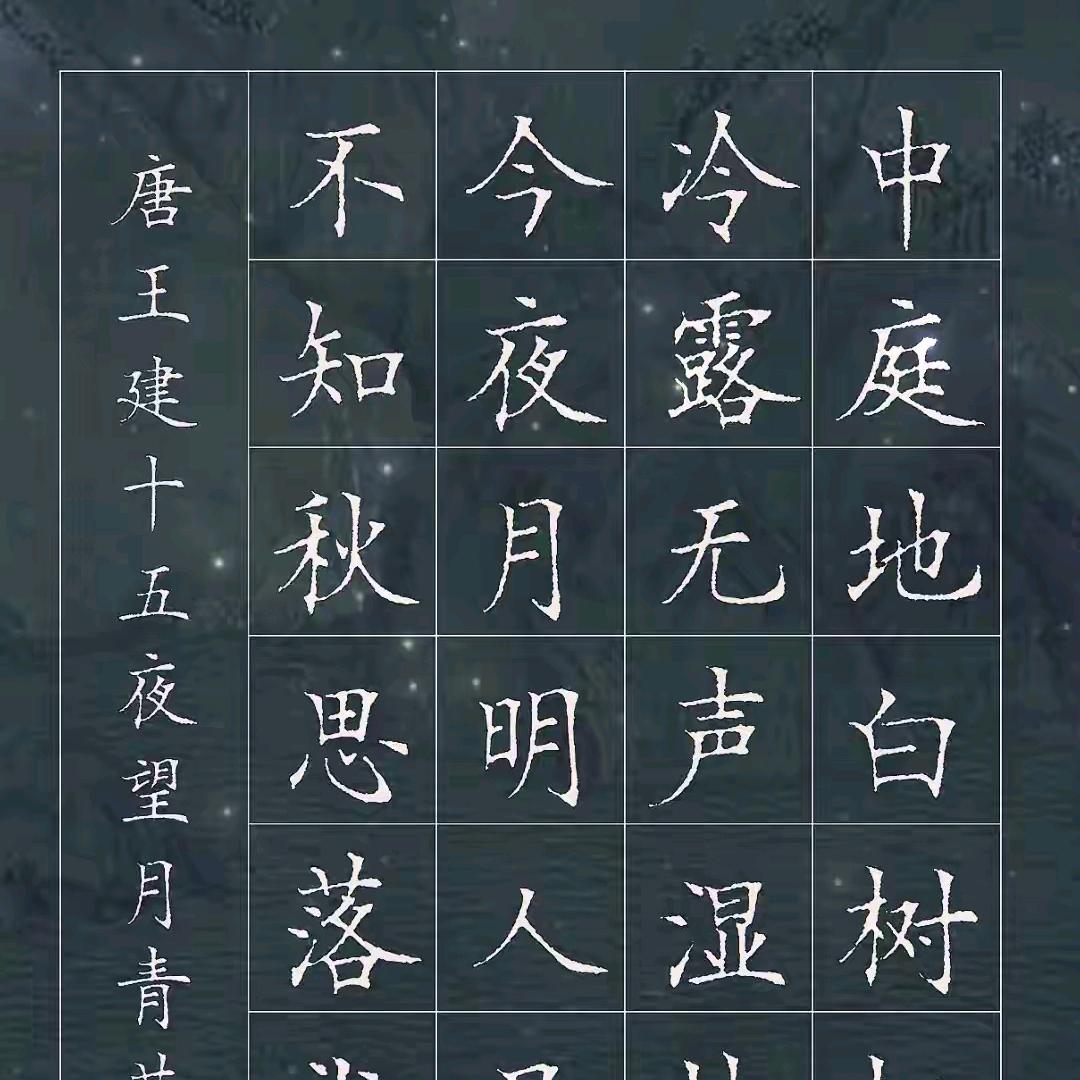 中庭地白树
冷露无声湿
今夜月明人
不知秋思落
唐王建十五夜望月青